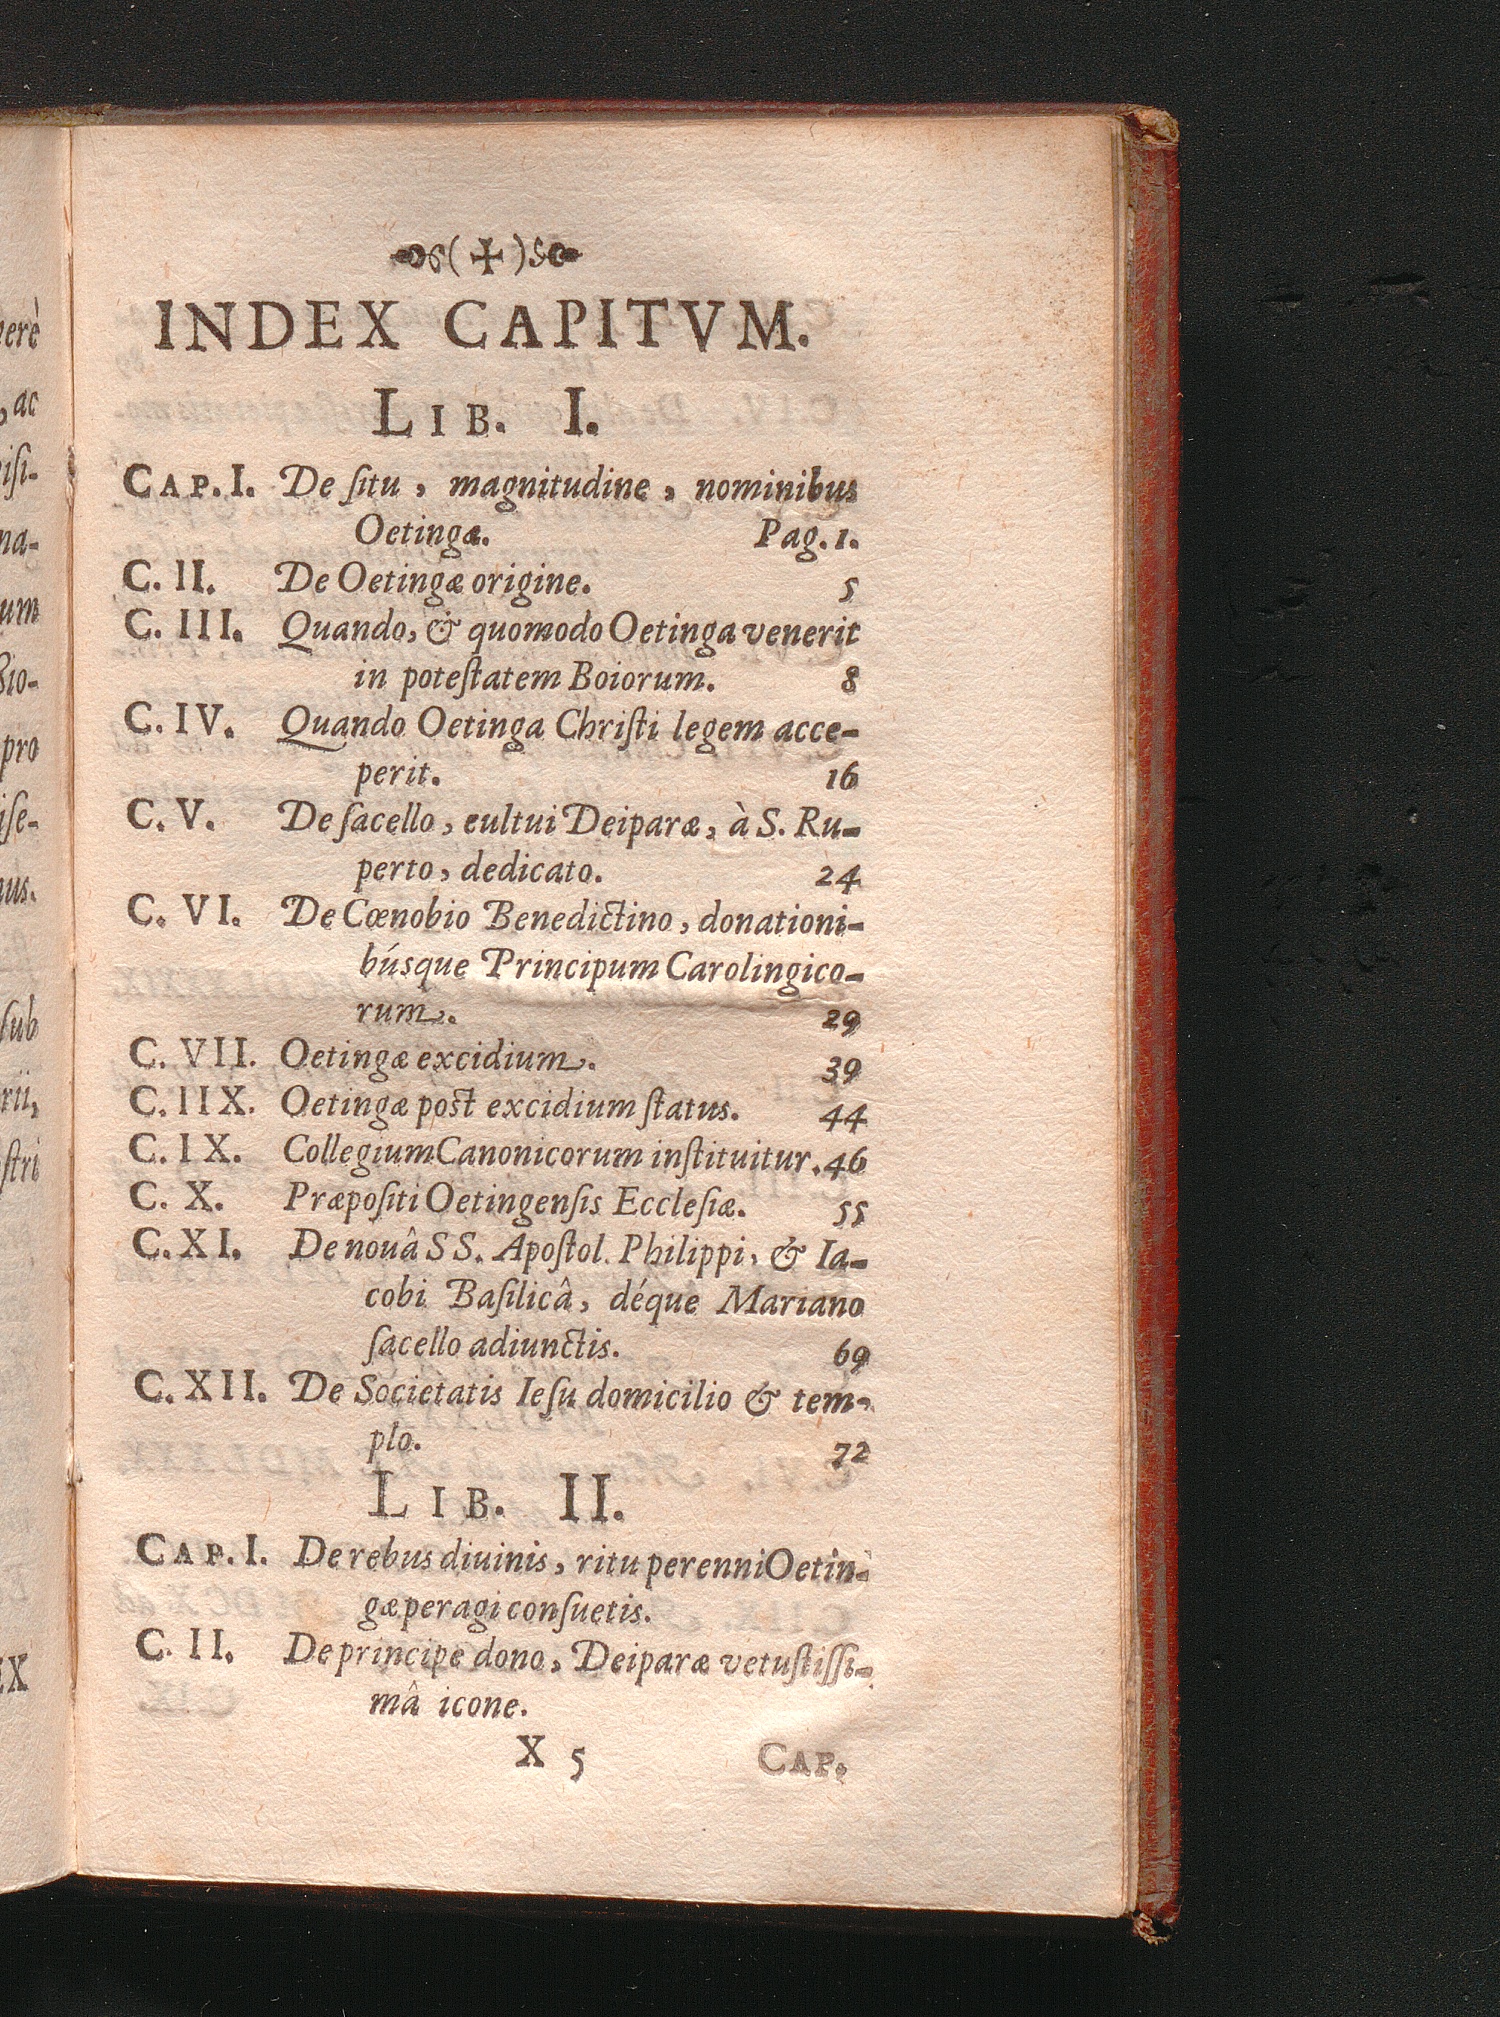 verè
, ac
isi-
na-
um
Bio-
pro
ise-
us.
sub
rii,
stri
EX
(✠)
INDEX CAPITVM.
LIB. I.
CAP. I. De situ, magnitudine, nominibus
Oetingæ. Pag. 1.
C. II. De Oetingæ origine. 5
C. III. Quando, & quomodo Oetinga venerit
in potestatem Boiorum. 8
C. IV. Quando Oetinga Christi legem acce-
perit. 16
C. V. De sacello, eultui Deiparæ, à S. Ru-
perto, dedicato. 24
C. VI. De Cœnobio Benedictino, donationi-
búsque Principum Carolingico-
rum. 29
C. VII. Oetingæ excidium. 39
C. IIX. Oetingæ post excidium status. 44
C. IX. Collegium Canonicorum instituitur. 46
C. X. Præpositi Oetingensis Ecclesiæ. 55
C. XI. De nouâ SS. Apostol. Philippi, & Ia-
cobi Basilicâ, déque Mariano
sacello adiunctis. 69
C. XII. De Societatis Iesu domicilio & tem-
plo. 72
LIB. II.
CAP. I. De rebus diuinis, ritu perenni Oetin-
gæ peragi consuetis.
C. II. De principe dono, Deiparæ vetustissi-
mâ icone.
X 5 CAP.